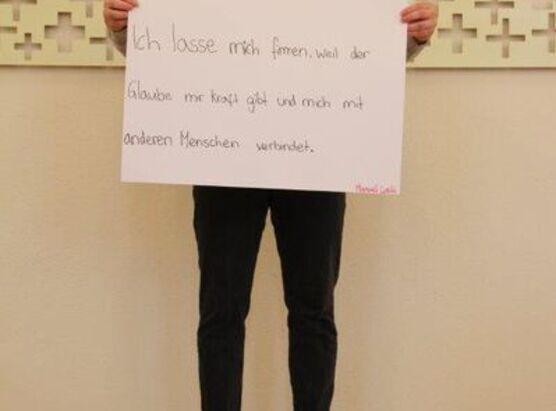 Ich lasse mich firmen, weil der
Glaube mir kraft gibt und mich mit
anderen Menschen verbindet.